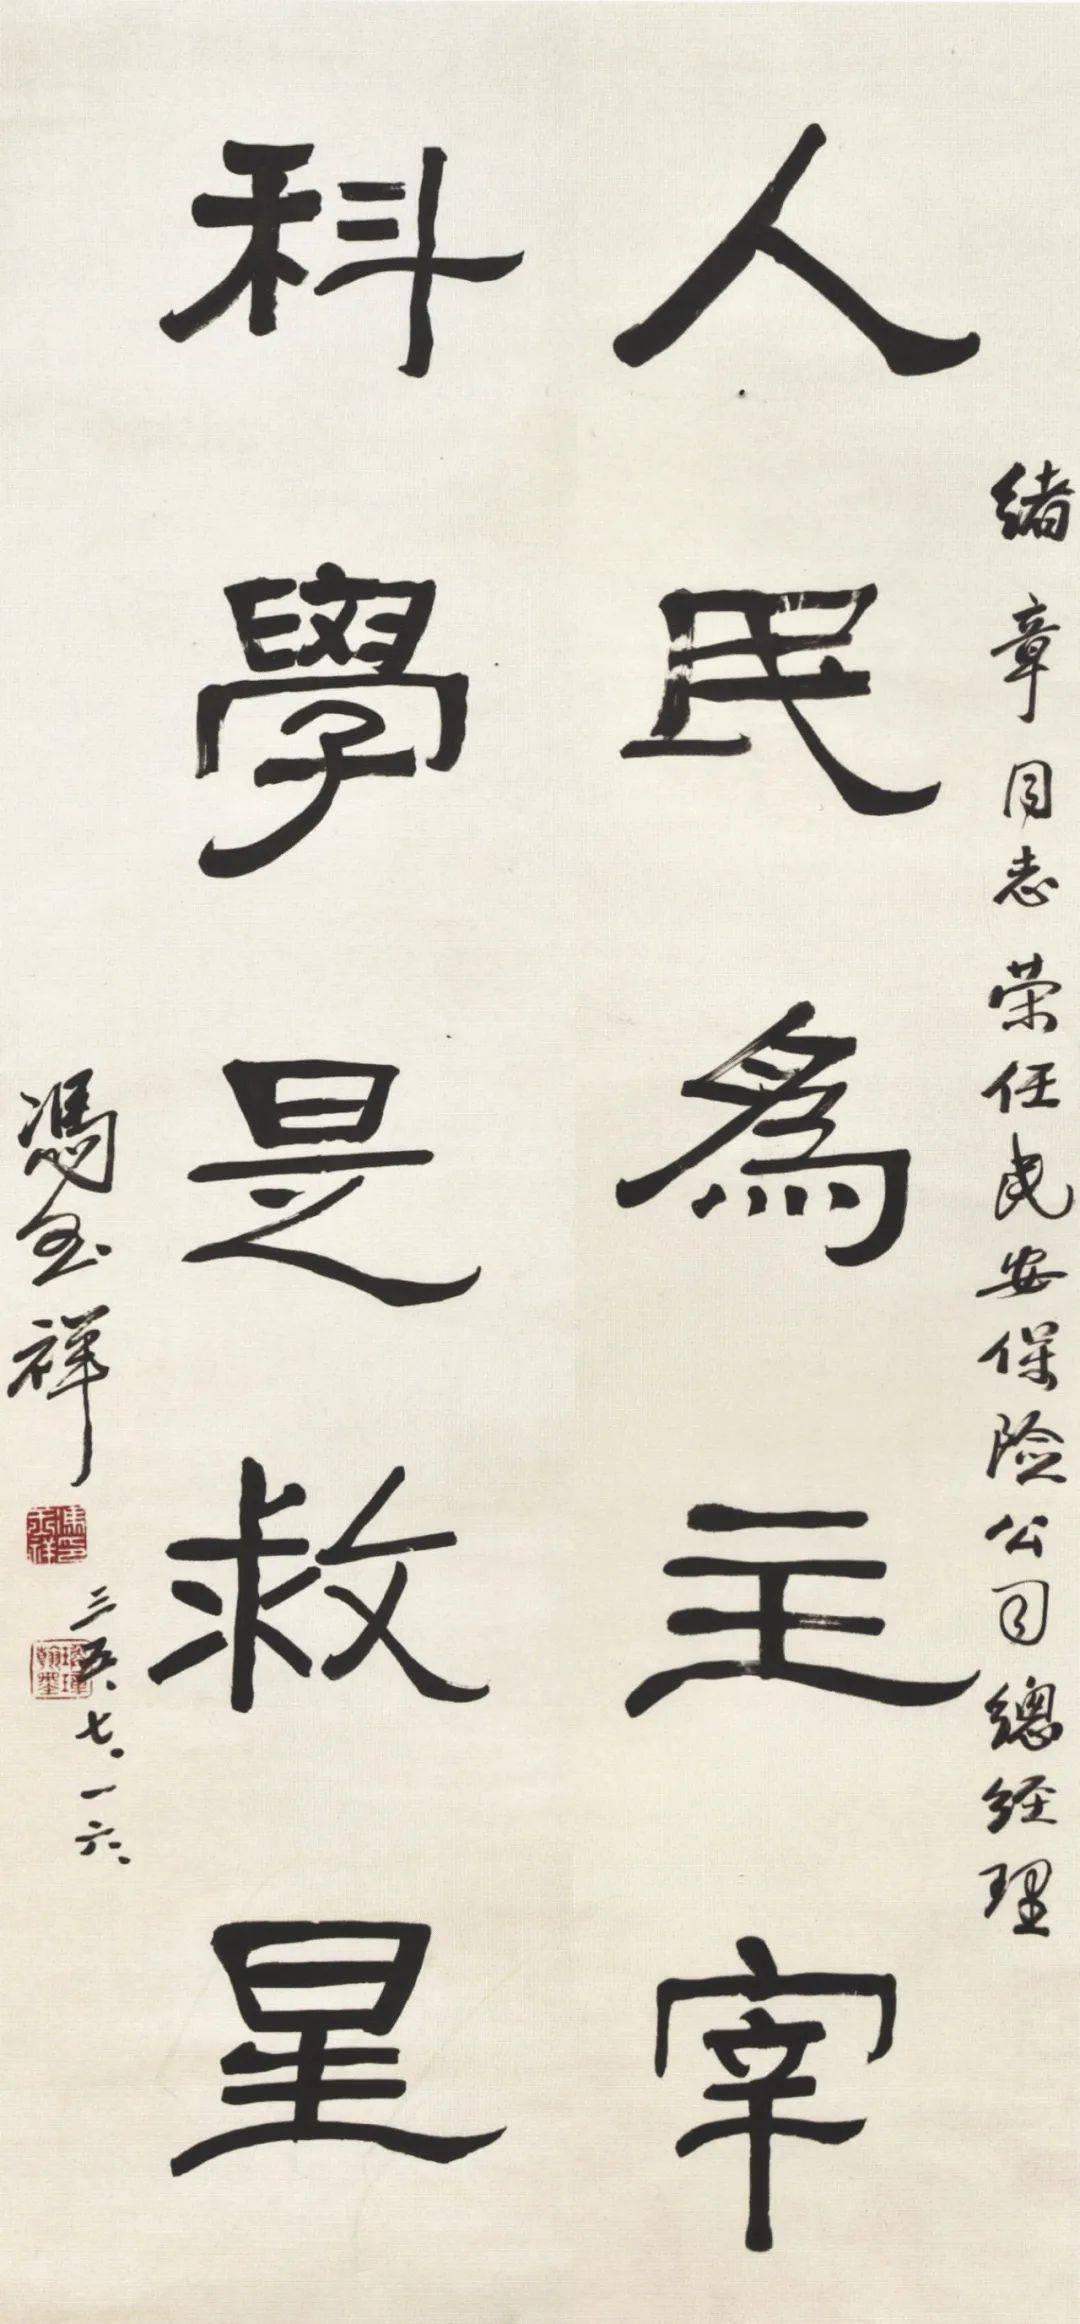 緒章同志荣任民安保险公司總经理
人民為主宰
科學是救星
馮玉祥
馮印玉祥
三五、七、一六、